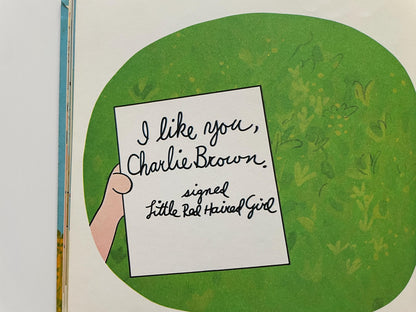 I like you,
Charlie Brown.
signed
Little Red Haired Girl